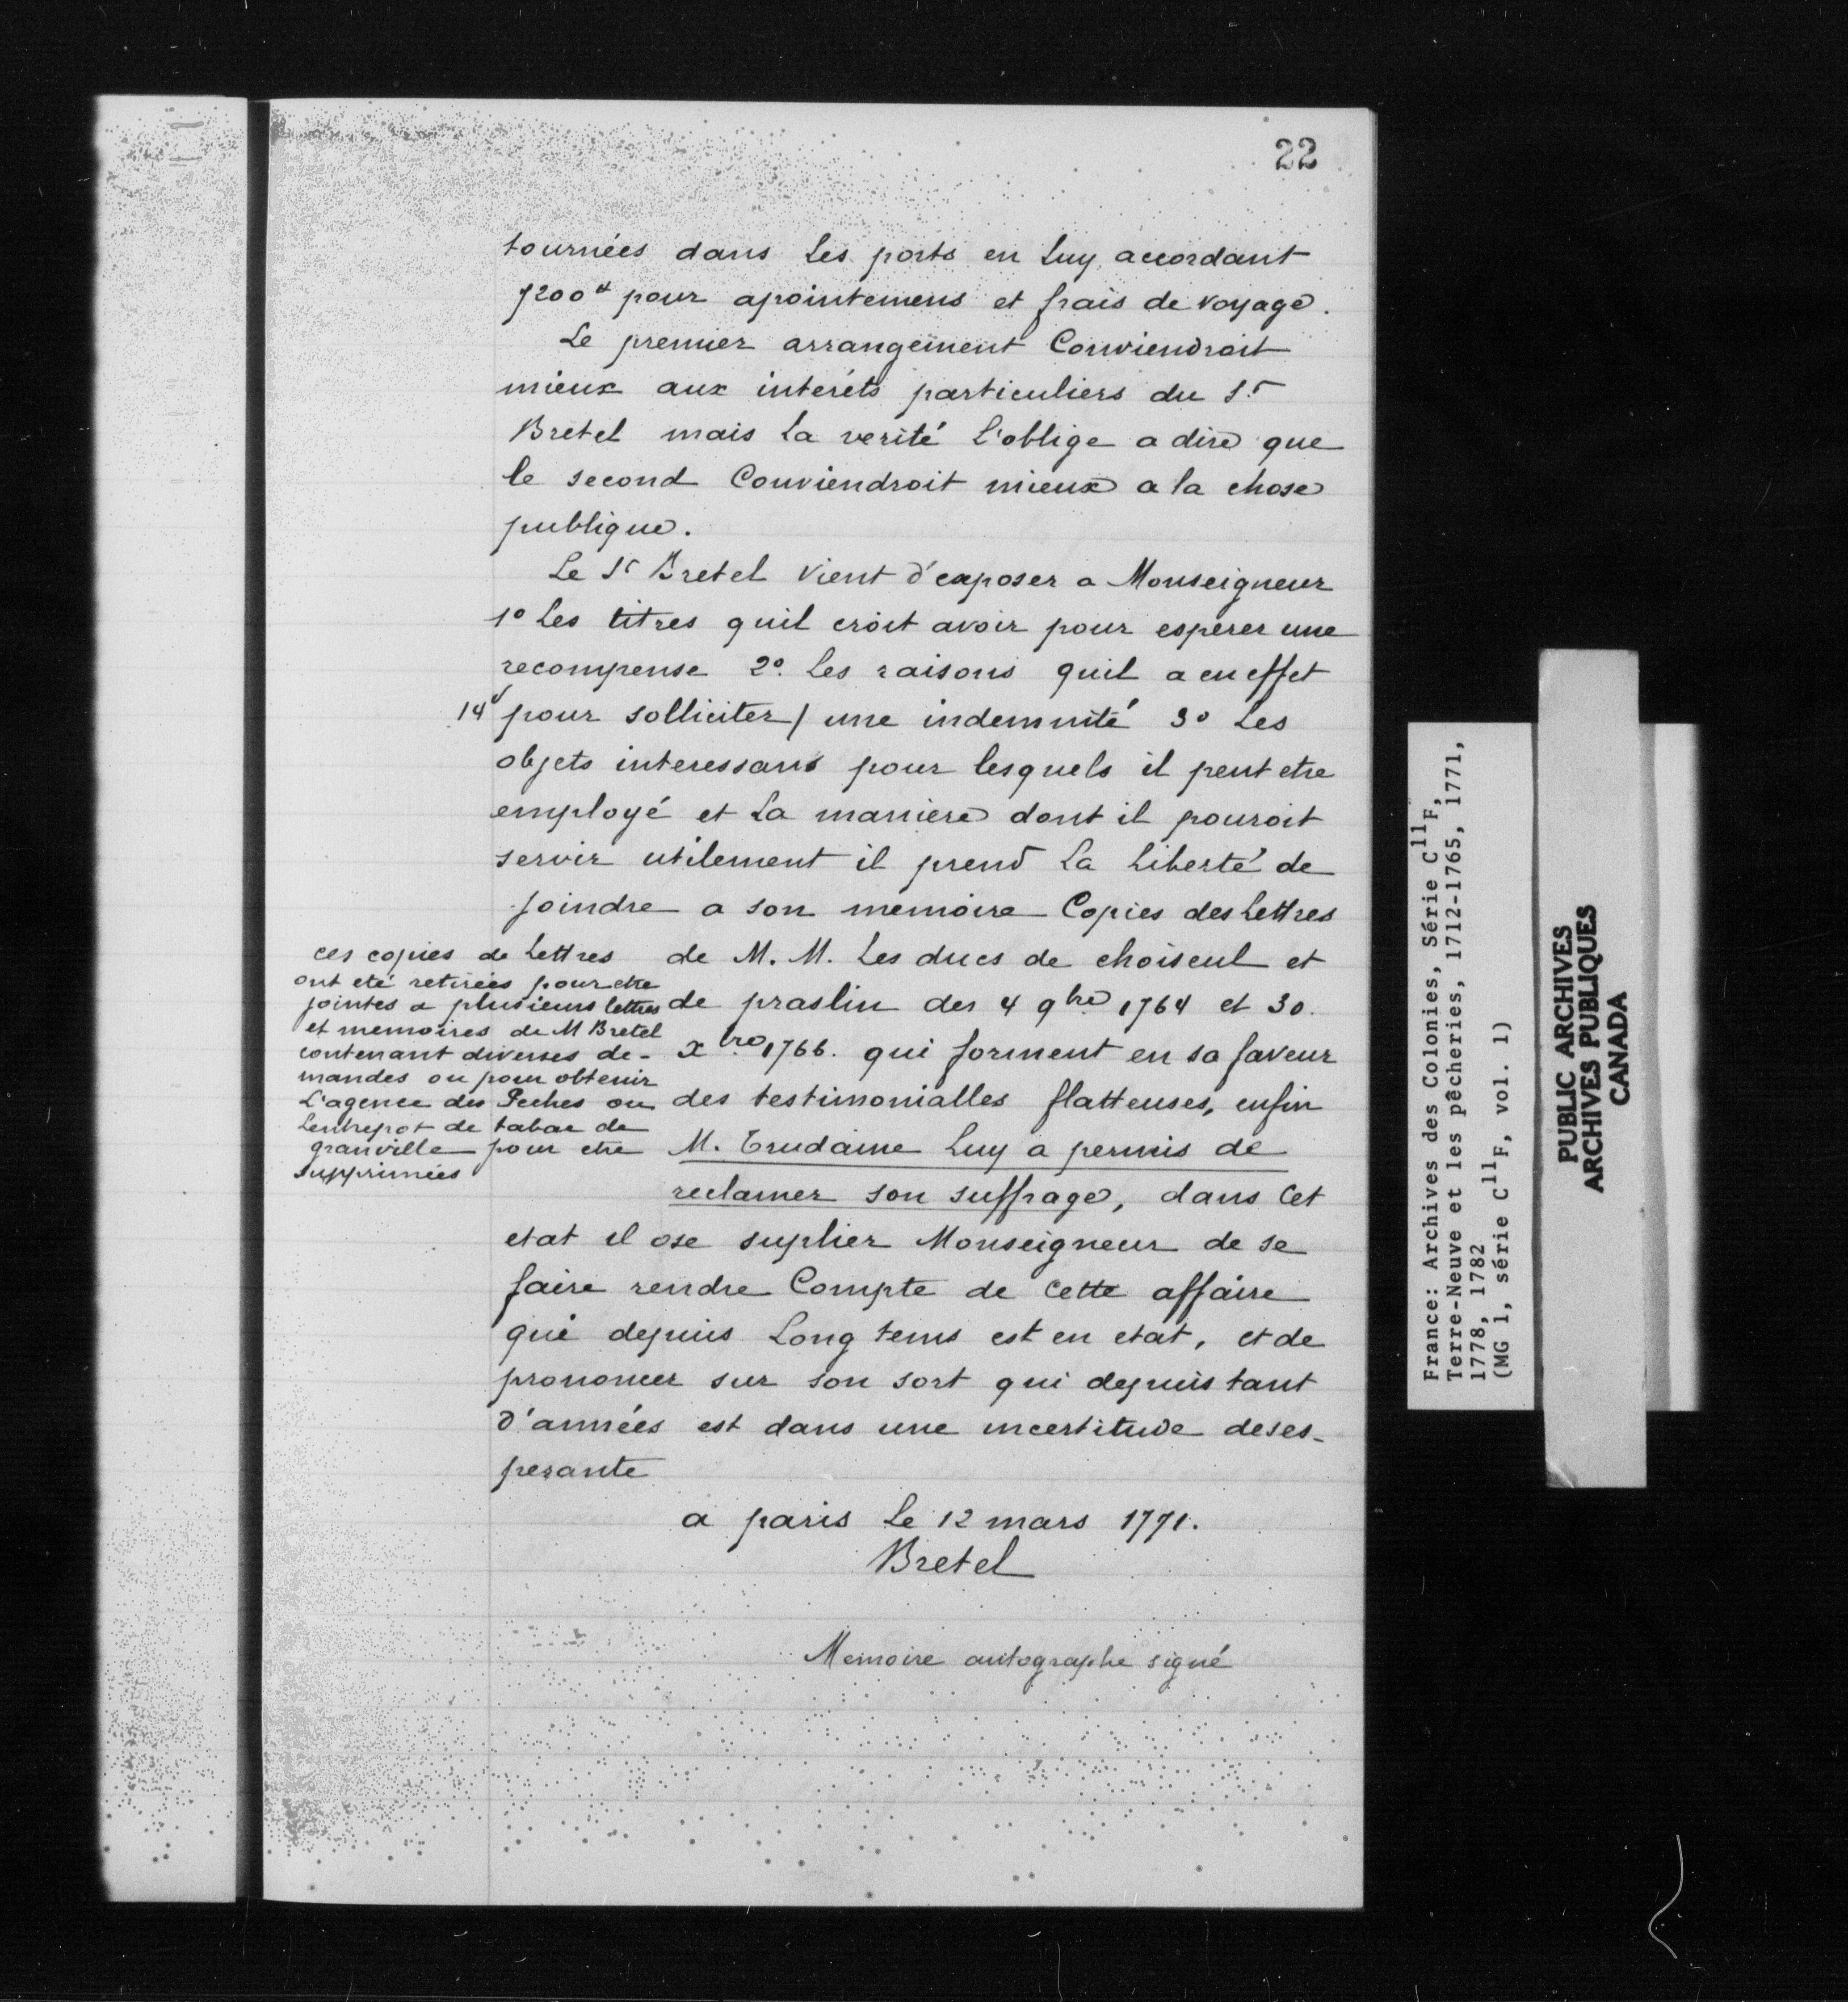 22
tournées dans Les ports en Luy accordant
7200# pour apointemens et frais de voyage.
Le premier arrangement Conviendroit
mieux aux interéts particuliers du Sr
Bretel mais La verité L'oblige a dire que
le second Conviendroit mieux a la chose
publique.
Le Sr Bretel vient d'exposer a Monseigneur
1o Les titres quil croit avoir pour esperer une
recompense 2o. Les raisons quil a en effet
14 pour solliciter / une indemnité 3o Les
objets interessans pour lesquels il peut etre
employé et La maniere dont il pouroit
servir utilement il prend La Liberté de
joindre a son memoire Copies des Lettres
de M. M. Les ducs de choiseul et
de praslin des 4 9bre 1764 et 30.
xbre 1766. qui forment en sa faveur
des testimonialles flatteuses, enfin
M. Trudaine Luy a permis de
reclamer son suffrage, dans cet
etat il ose suplier Monseigneur de se
faire rendre Compte de cette affaire
qui depuis Long tems est en etat, et de
prononcer sur son sort qui depuis tant
d'années est dans une incertitude deses-
perante
a paris Le 12 mars 1771.
Bretel
Memoire autographe signé
ces copies de Lettres
ont eté retirées pour etre
jointes a plusieurs lettres
et memoires de M Bretel
contenant diverses de-
mandes ou pour obtenir
L'agence des Peches ou
Lentrepot de tabac de
granville pour etre
supprimées
France: Archives des Colonies, Série C11F,
Terre-Neuve et les pêcheries, 1712-1765, 1771,
1778, 1782
(MG 1, série C11F, vol. 1)
PUBLIC ARCHIVES
ARCHIVES PUBLIQUES
CANADA